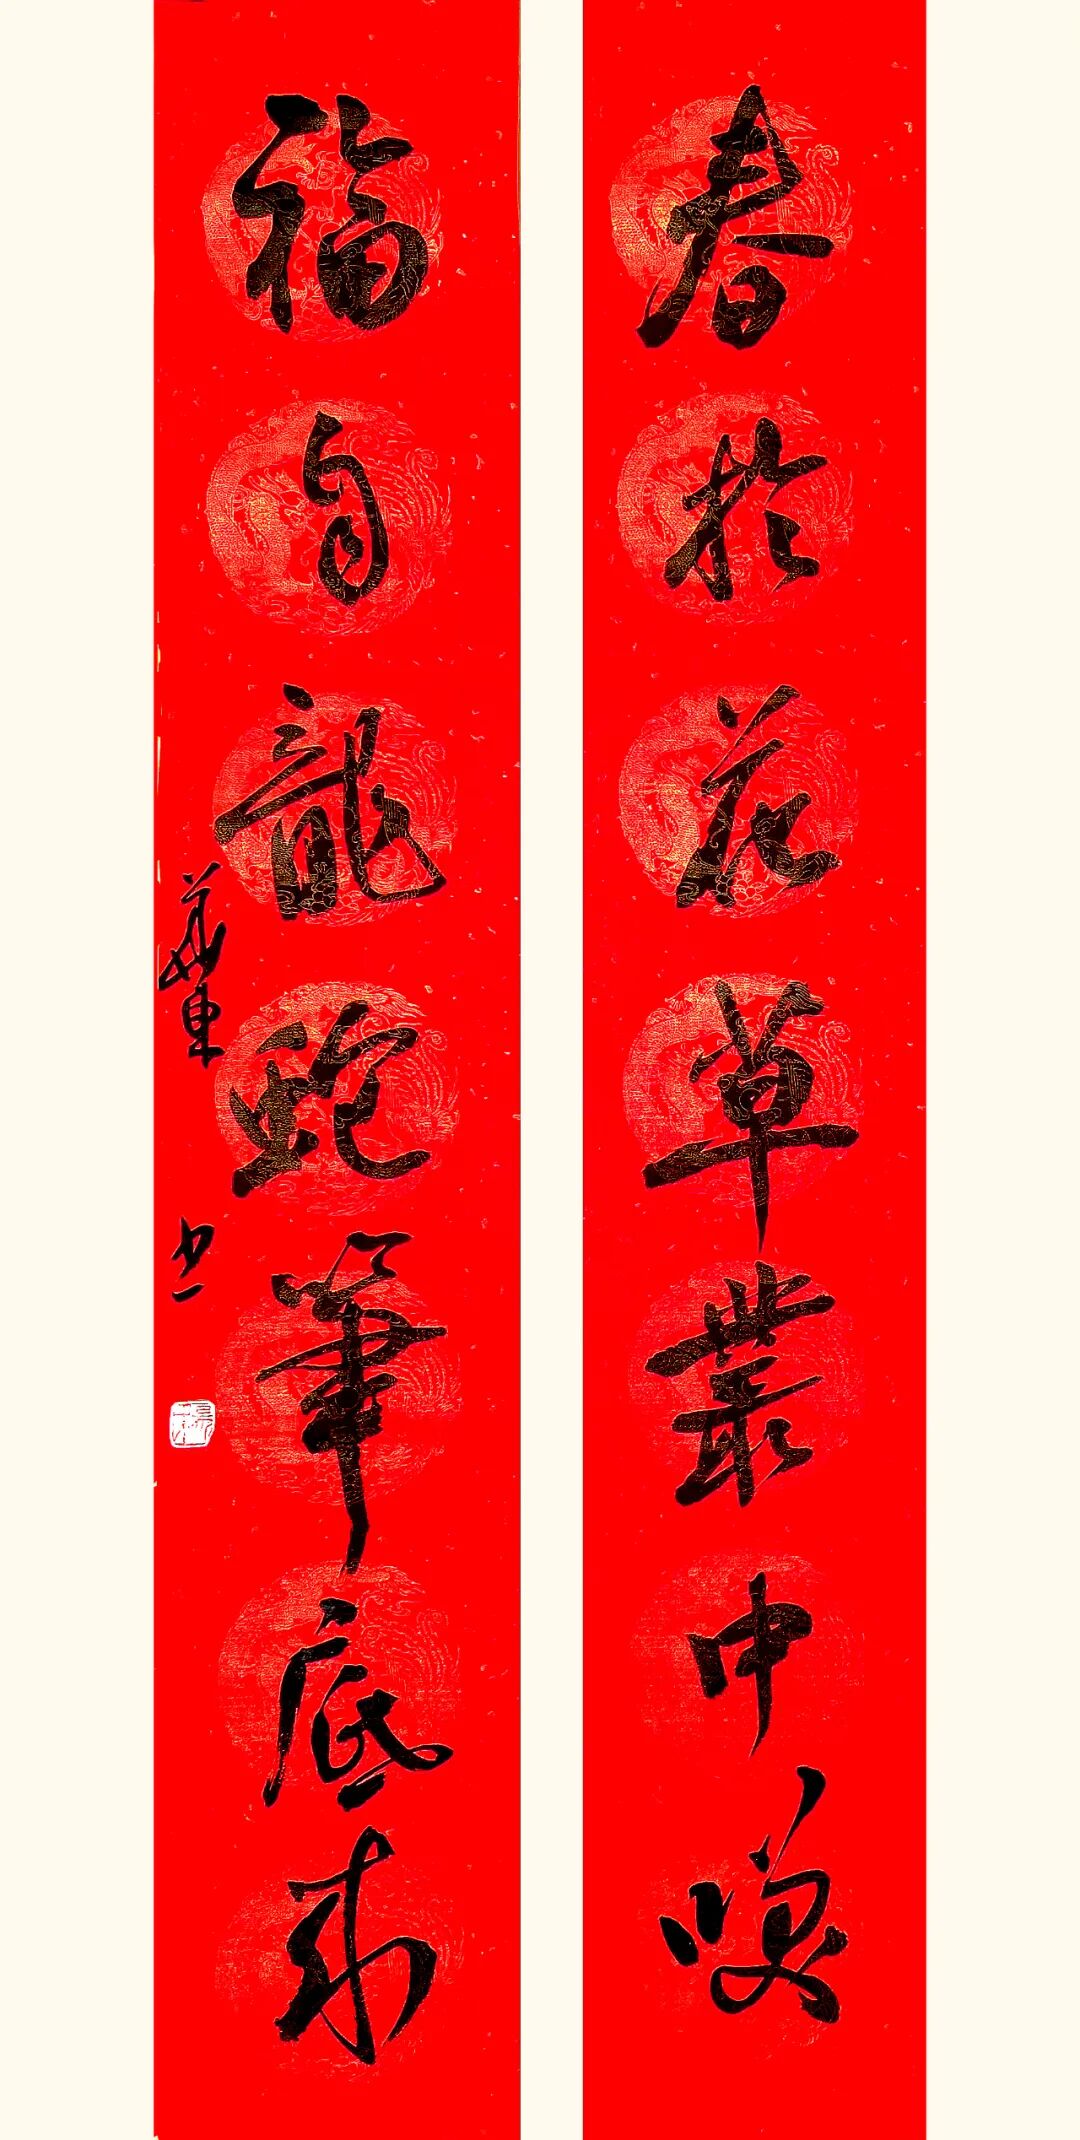 春於花草叢中喚
福自龍蛇筆底來
華東
书